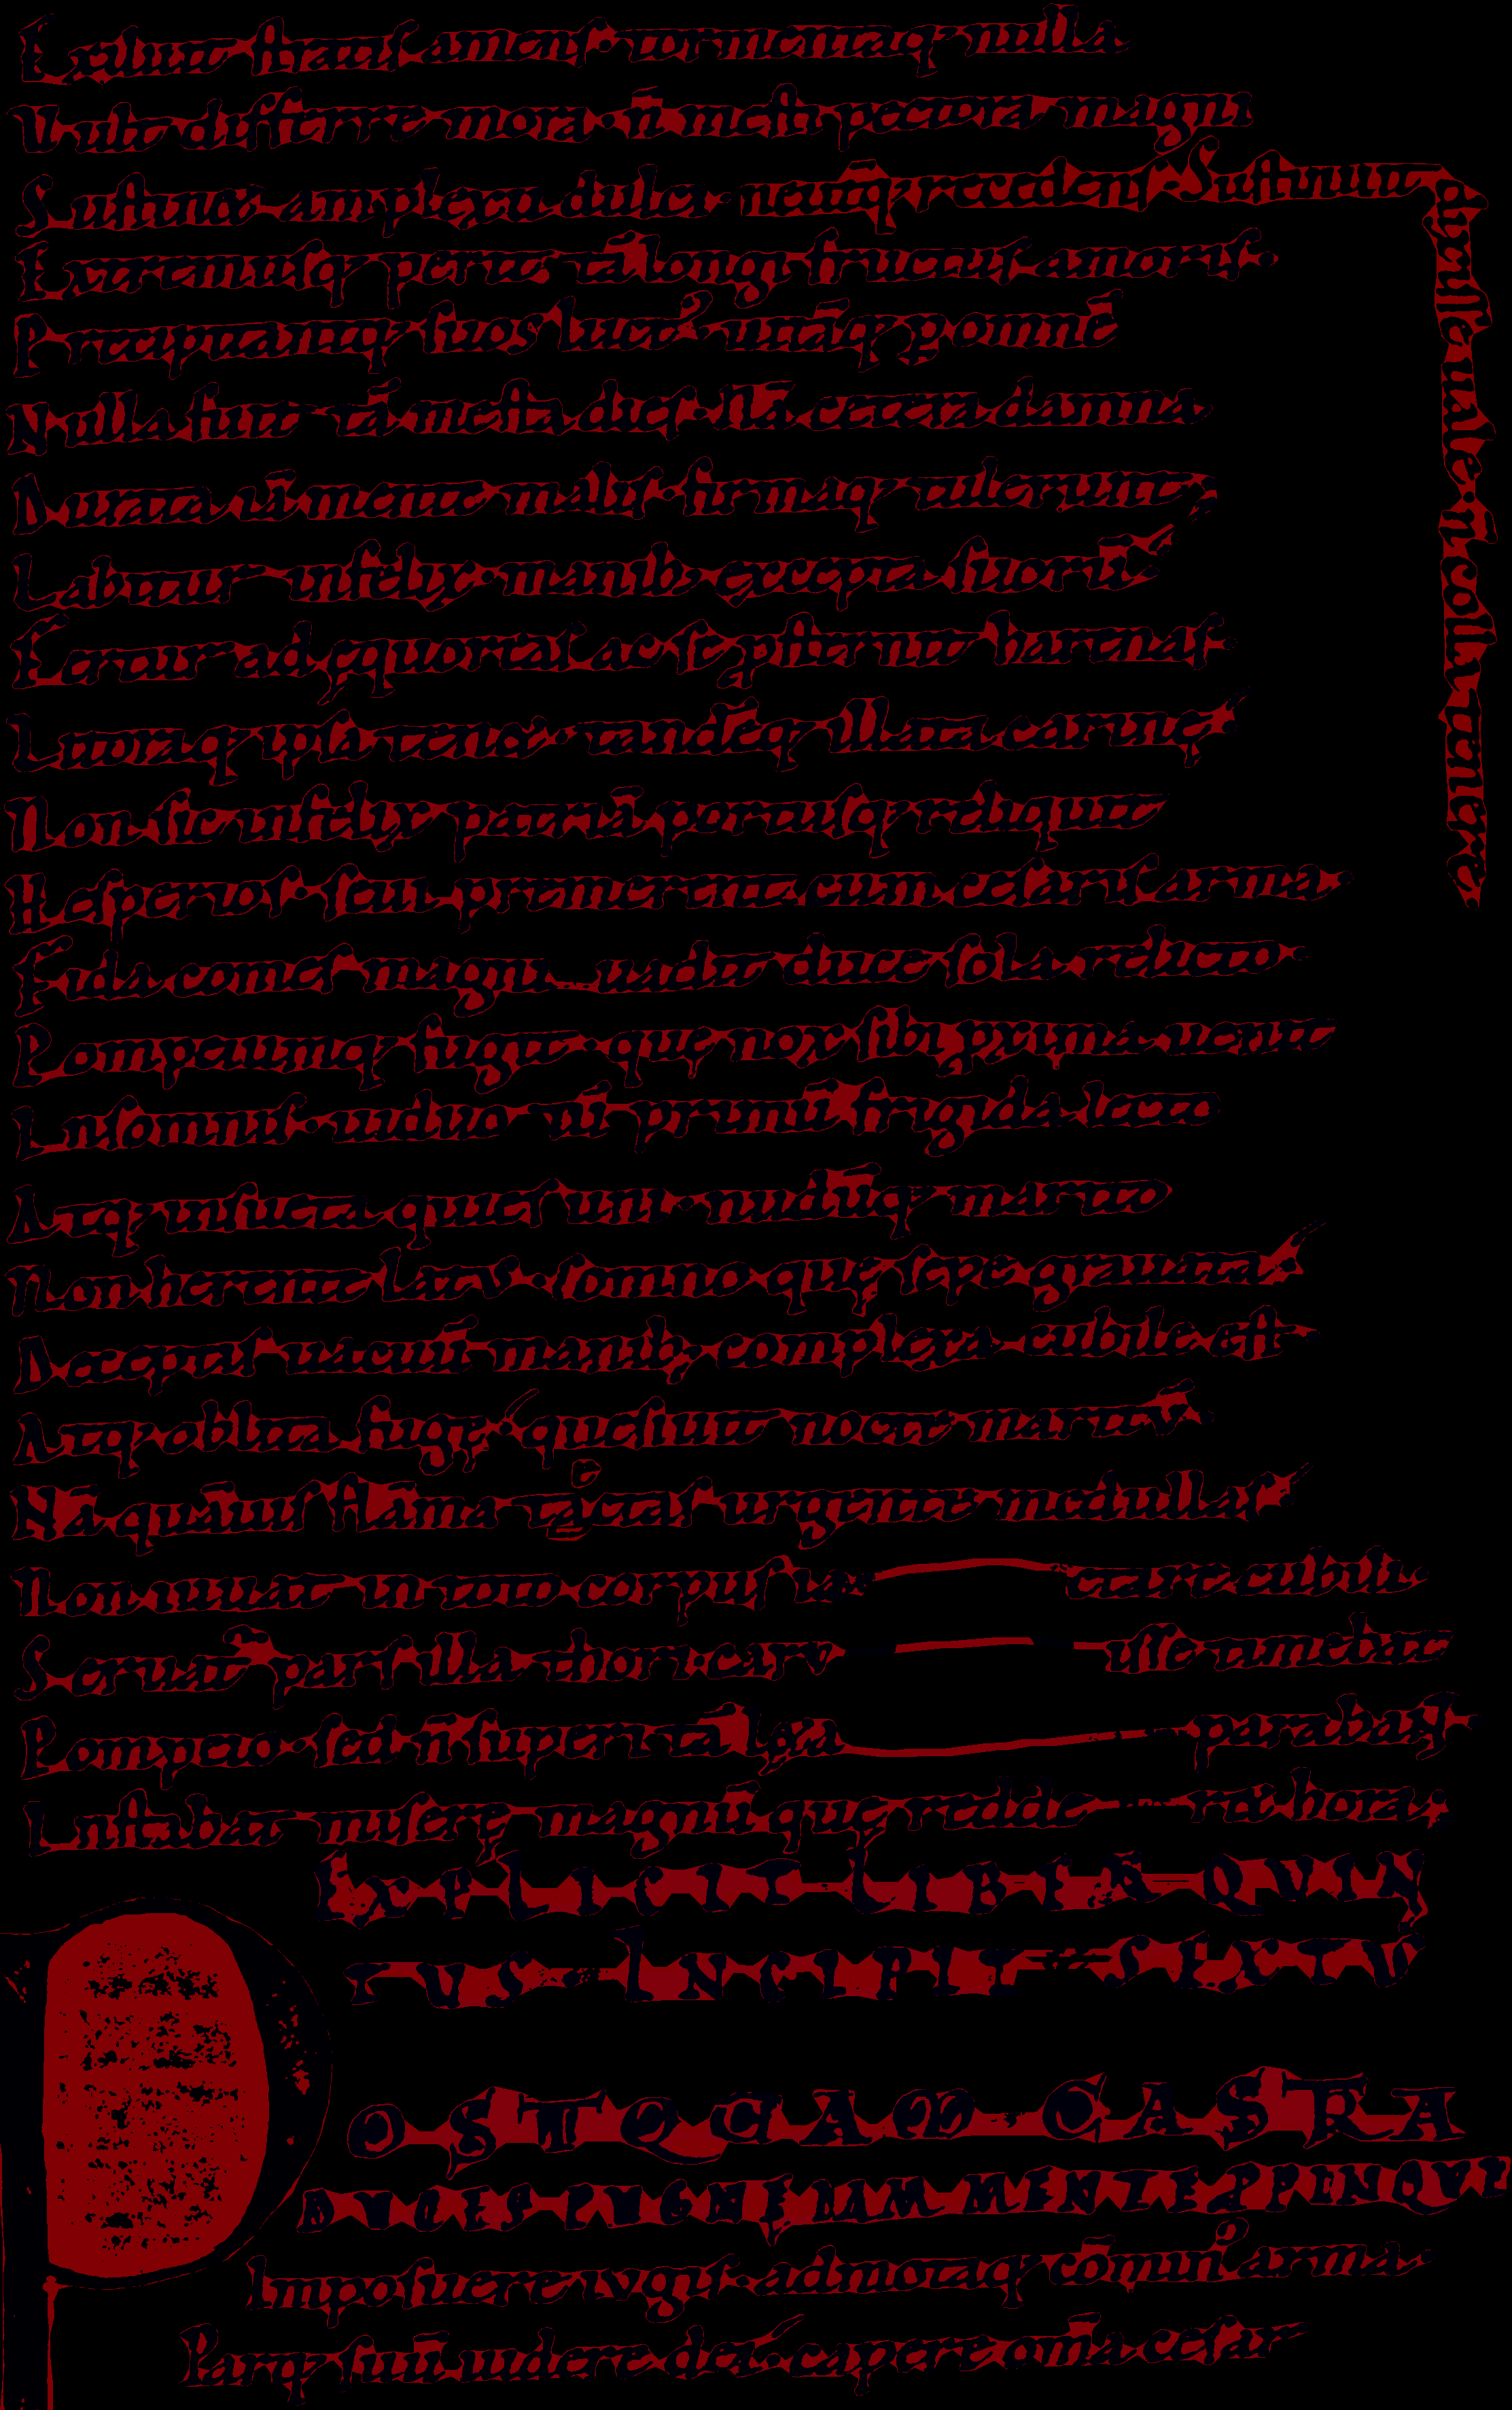 Exiluit stratis amens. tormentaq; nulla
Vult differre mora. n̄ mesti pectora magni
Sustinet amplexu dulci. n̄ colla tenere
Extremusq; perit tā longi fructus amoris.
Precipitantq; suos luct᷒. neut̄q; recedens Sustinuit dixisse uale. 
Nulla fuit tā mesta dies. Nā cetera damna
Durata iā mente malis. firmaq; tulerunt
Labitur infelix. manib; excepta suorū.
Fertur ad equoreas ac se psternit harenas.
Litoraq; ipsa tenet. tandēq; illata carinę
Non sic infelix patriā portusq; reliquit
Hesperios. seui premeret cum cesaris arma.
Fida comes magni uadit duce sola relicto.
Pompeiumq; fugit. que nox sibi pxima uenit
Insomnis. uiduo tū primū frigida lecto
Atq; insueta quies uni. nudūq; marito
Non herente latus. somno quę sepe grauata
Deceptis uacuū manib; complexa cubile est
Atq; oblita fugę. quesiuit nocte maritū.
Nā quāuis flāma tacitas urgente medullas
Non iuuat in toto corpus iactare cubili.
Seruat̄ pars illa thori. caruisse timebat
Pompeio. sed n̄ superi tā lęta parabant
Instabat miserę magnū quę redderet hora.
EXPLICIT LIBER QVIN
TVS INCIPIT SEXTV
POSTQVAM CASTRA
DVCES PVGNE IAM MENTE PPINQVI
Imposuere iugis. admotaq; comin᷒ arma.
Parq; suū uidere dei. capere om̄a cesar